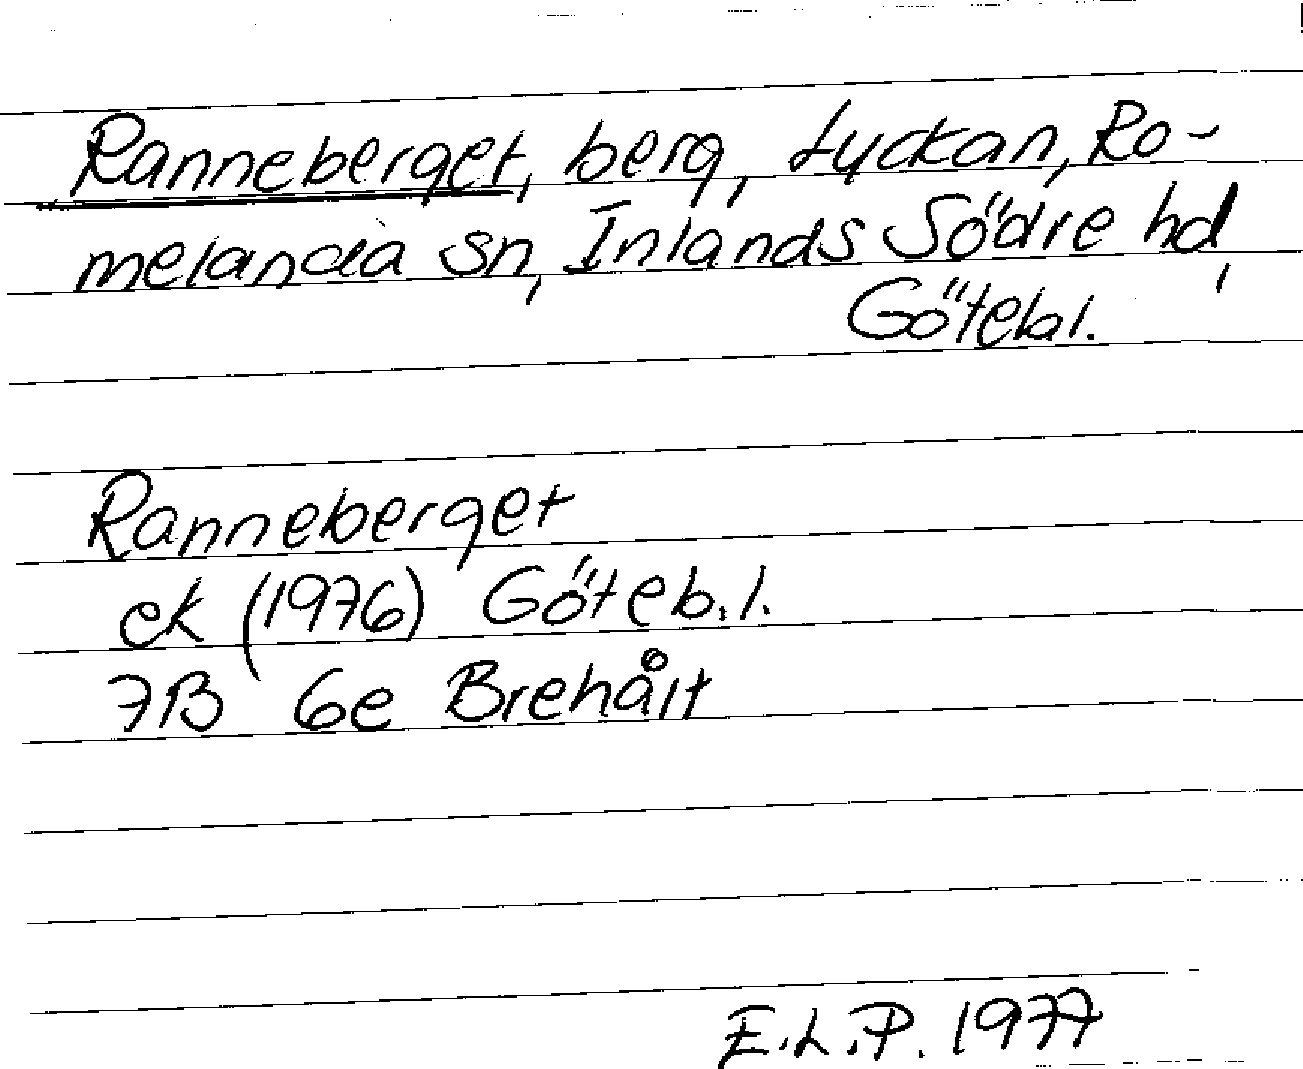 Ranneberget, berg, Lyckan, Ro-
melanda sn, Inlands Södre hd,
Götebl.
Ranneberget
ek (1976) Göteb. l.
7B 6e Brehålt
E.L.P. 1977